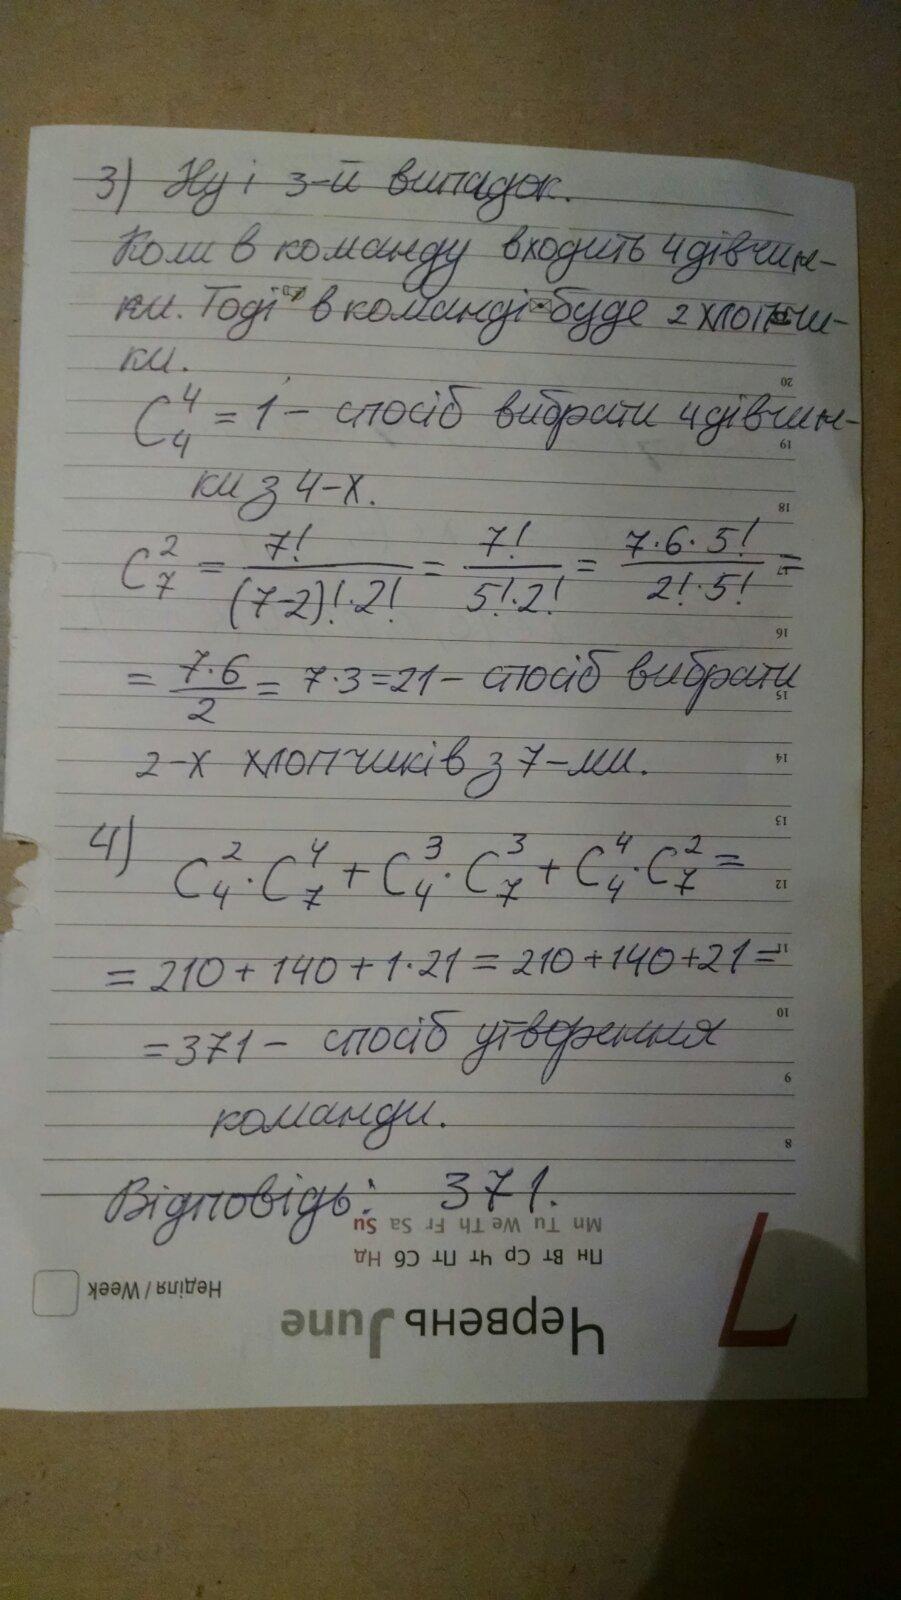 3) Ну і 3-й випадок.
Коли в команду входить 4 дівчин-
ки. Тоді в команді буде 2 хлопчи-
ки.
C₄⁴ = 1 - спосіб вибрати 4 дівчин-
ки з 4-х.
C₇² = 7!/((7-2)!·2!) = 7!/(5!·2!) = (7·6·5!)/(2!·5!) =
= (7·6)/2 = 7·3 = 21 - спосіб вибрати
2-х хлопчиків з 7-ми.
4)
C₄²·C₇⁴ + C₄³·C₇³ + C₄⁴·C₇² =
= 210 + 140 + 1·21 = 210 + 140 + 21 =
= 371 - спосіб утворення
команди.
Відповідь: 371.
20
19
18
17
16
15
14
13
12
11
10
9
8
Mn Tu We Th Fr Sa Su
Пн Вт Ср Чт Пт Сб Нд
Неділя / Week
Червень June
7